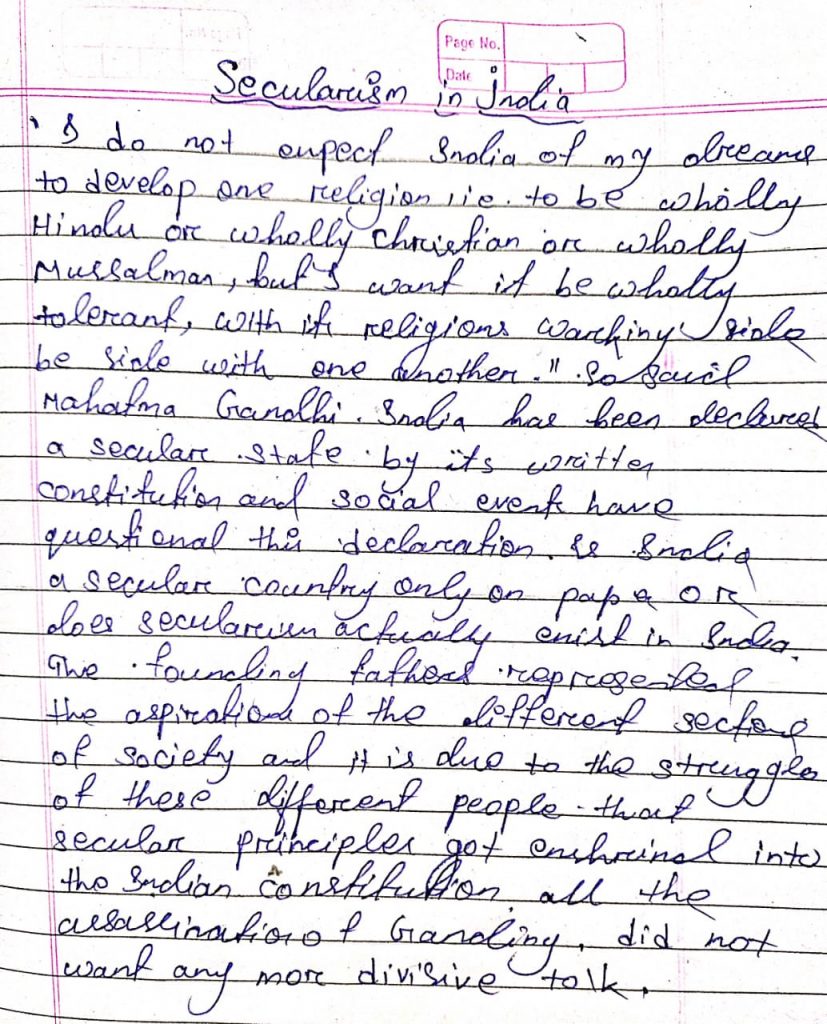 Page No.
Date
Secularism in India
" I do not expect India of my dreams
to develop one religion, i.e. to be wholly
Hindu or wholly christian or wholly
Mussalman, but I want it be wholly
tolerant, with its religions working side
be side with one another." So said
Mahatma Gandhi. India has been declared
a secular state by its written
constitution and social events have
questional this declaration. Is India
a secular country only on pap a or
does secularism actually exist in India.
The founding fathers represented
the aspirations of the different sections
of society and it is due to the struggles
of these different people that
secular principles got enshrined into
the Indian Constitution all the
assassination of Gandhiy, did not
want any more divisive talk.